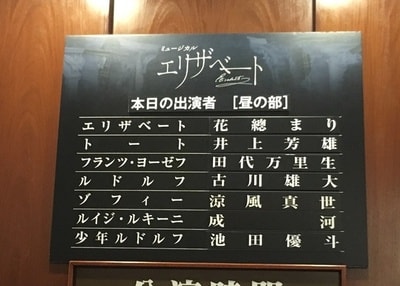 ミュージカル
エリザベート
Elisabeth
本日の出演者 [昼の部]
エリザベート 花總まり
トート 井上芳雄
フランツ・ヨーゼフ 田代万里生
ルドルフ 古川雄大
ゾフィー 涼風真世
ルイジ・ルキーニ 成河
少年ルドルフ 池田優斗